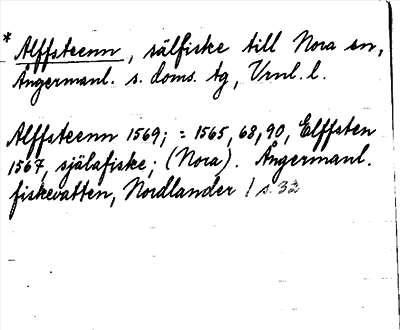 * Alffsteenn, sälfiske till Nora sn,
Ångermanl. s. doms. tg, Vrnl. l.
Alffsteenn 1569; = 1565, 68, 90, Elffsten
1567, själafiske; (Nora). Ångermanl.
fiskevatten, Nordlander / s. 32